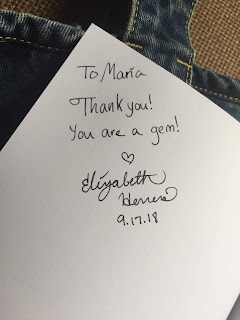 To Maria
Thank you!
You are a gem!
♡
Elizabeth
Herrera
9.17.18